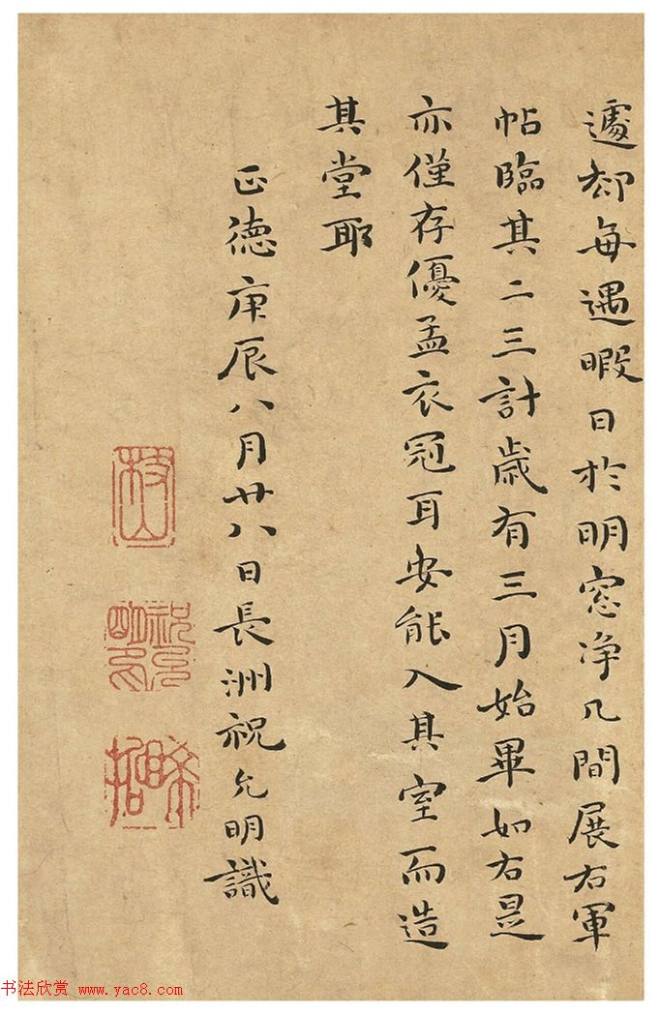 遽却每遇暇日於明窓净几間展右軍
帖臨其二三計歲有三月始畢如右是
亦僅存優孟衣冠耳安能入其室而造
其堂耶
正德庚辰八月廿八日長洲祝允明識
枝山
祝允明印
晞喆
书法欣赏 www.yac8.com